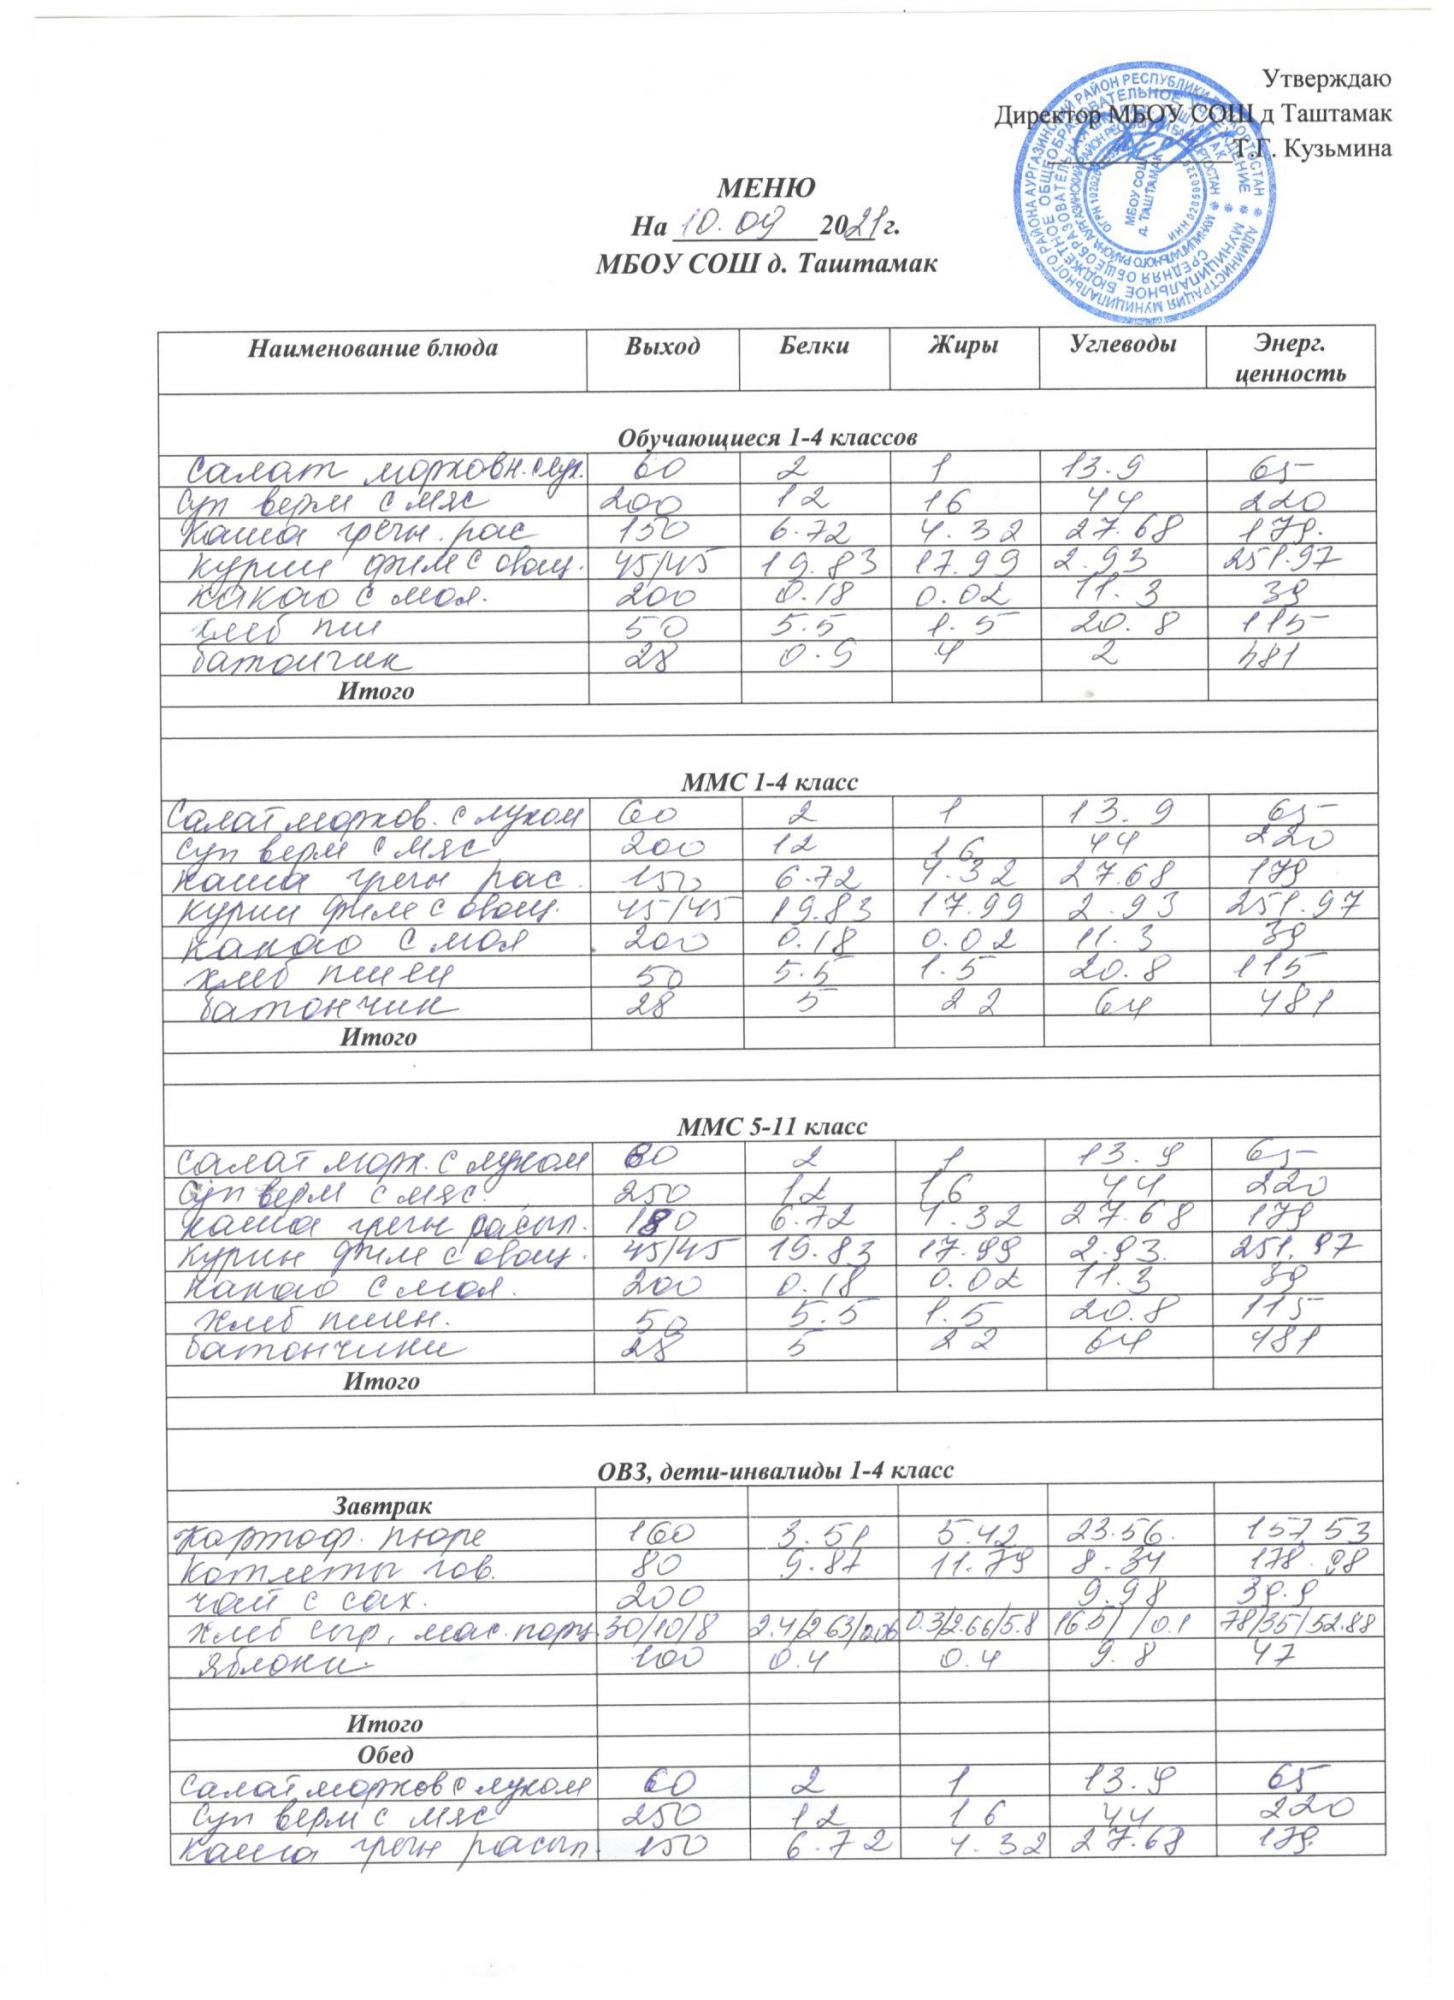 Утверждаю
Директор МБОУ СОШ д Таштамак
Т.Г. Кузьмина
МЕНЮ
На 10.09 2021г.
МБОУ СОШ д. Таштамак
Наименование блюда Выход Белки Жиры Углеводы Энерг. ценность
Обучающиеся 1-4 классов
Салат морковн. с лук. 60 2 1 13.9 65
Суп верм с мяс 200 12 16 44 220
Каша гречн. рас 150 6.72 4.32 27.68 179.
Курин филе с овощ. 45/45 19.83 17.99 2.93 251.97
какао с мол. 200 0.18 0.02 11.3 39
хлеб пш 50 5.5 1.5 20.8 115
батончик 28 0.9 4 2 481
Итого
ММС 1-4 класс
Салат морков. с луком 60 2 1 13.9 65
Суп верм с мяс 200 12 16 44 220
каша гречн рас. 150 6.72 4.32 27.68 179
курин филе с овощ. 45/45 19.83 17.99 2.93 251.97
какао с мол 200 0.18 0.02 11.3 39
хлеб пшен 50 5.5 1.5 20.8 115
батончик 28 5 22 64 481
Итого
ММС 5-11 класс
Салат морк. с луком 80 2 1 13.9 65
Суп верм с мяс. 250 12 16 44 220
каша гречн рассып. 180 6.72 4.32 27.68 179
курин филе с овощ. 45/45 19.83 17.99 2.93. 251.97
какао с мол. 200 0.18 0.02 11.3 39
Хлеб пшен. 50 5.5 1.5 20.8 115
батончики 28 5 22 64 481
Итого
ОВЗ, дети-инвалиды 1-4 класс
Завтрак
картоф. пюре 160 3.51 5.42 23.56. 157,53
Котлеты гов. 80 9.87 11.79 8.34 178.98
чай с сах. 200 9.98 39.9
хлеб сыр, мас. порц. 30/10/8 2.4/2.63/0.06 0.3/2.66/5.8 16.5/ /0.1 78/35/52.88
Яблоки. 100 0.4 0.4 9.8 47
Итого
Обед
Салат морков с луком 60 2 1 13.9 65
Суп верм с мяс 250 12 16 44 220
каша гречн рассып. 150 6.72 4.32 27.68 179.
МБОУ СОШ
д. ТАШТАМАК